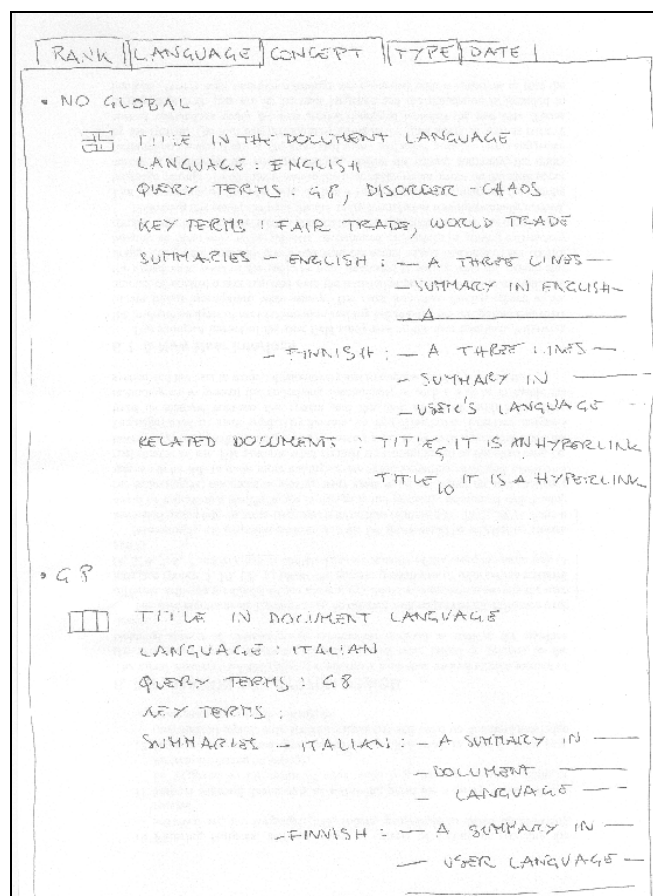 RANK LANGUAGE CONCEPT TYPE DATE
• NO GLOBAL
TITLE IN THE DOCUMENT LANGUAGE
LANGUAGE : ENGLISH
QUERY TERMS : G8, DISORDER - CHAOS
KEY TERMS : FAIR TRADE, WORLD TRADE
SUMMARIES - ENGLISH : — A THREE LINES —
— SUMMARY IN ENGLISH —
— A
- FINNISH : — A THREE LINES —
- SUMMARY IN
— USER'S LANGUAGE
RELATED DOCUMENT : TITLE5 IT IS AN HYPERLINK
TITLE10 IT IS A HYPERLINK
• G8
TITLE IN DOCUMENT LANGUAGE
LANGUAGE : ITALIAN
QUERY TERMS : G8
KEY TERMS :
SUMMARIES - ITALIAN : — A SUMMARY IN —
— DOCUMENT —
— LANGUAGE —
- FINNISH : — A SUMMARY IN —
— USER LANGUAGE —